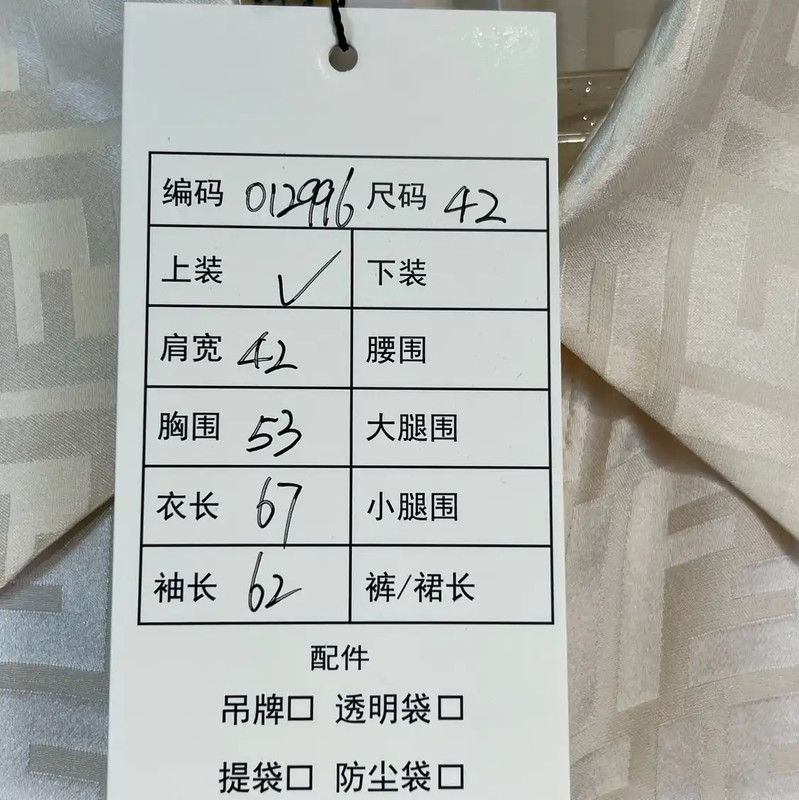 编码 012996 尺码 42
上装 ✓ 下装
肩宽 42 腰围
胸围 53 大腿围
衣长 67 小腿围
袖长 62 裤/裙长
配件
吊牌□ 透明袋□
提袋□ 防尘袋□